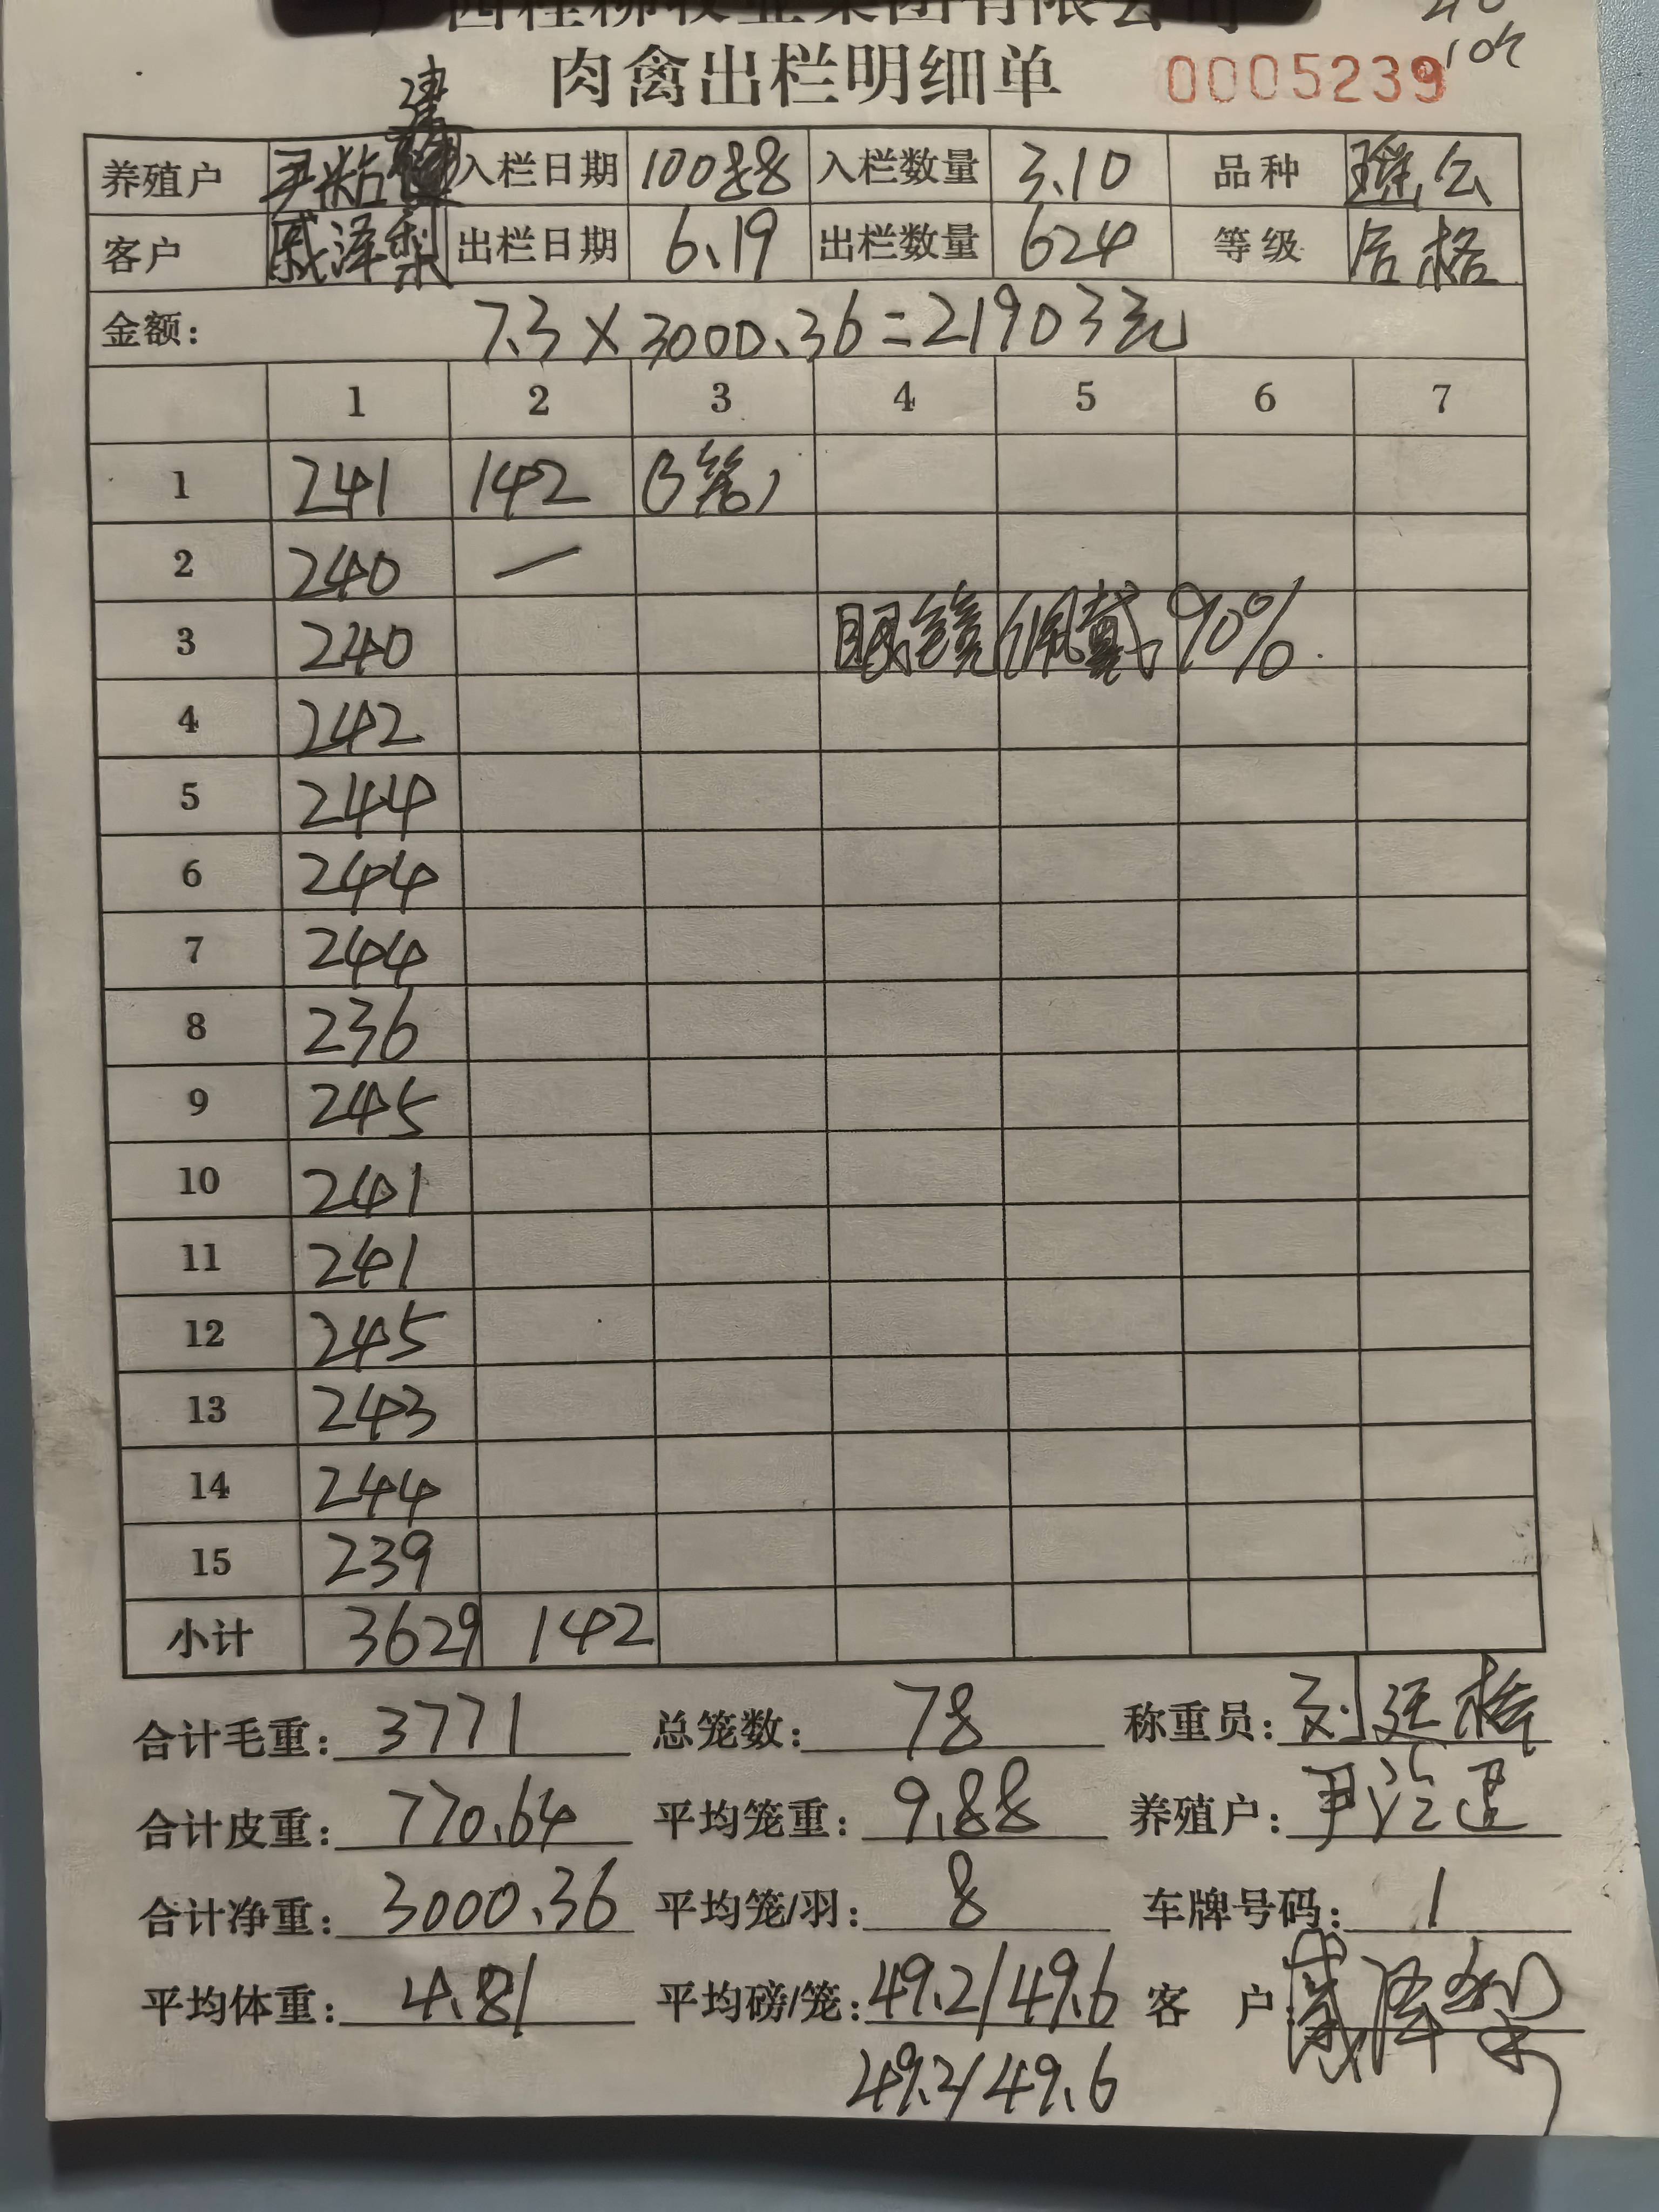 西桂柳牧业集团有限公司
肉禽出栏明细单 0005239
养殖户 尹 建 入栏日期 10088 入栏数量 3.10 品种 瑶公
客户 戚泽梨 出栏日期 6.19 出栏数量 624 等级 合格
金额: 7.3×3000.36=21903元
1 2 3 4 5 6 7
1 241 142 (3笼)
2 240 —
3 240 眼镜佩戴90%.
4 242
5 244
6 244
7 244
8 236
9 245
10 241
11 241
12 245
13 243
14 244
15 239
小计 3629 142
合计毛重: 3771 总笼数: 78 称重员: 刘廷格
合计皮重: 770.64 平均笼重: 9.88 养殖户: 尹
合计净重: 3000.36 平均笼/羽: 8 车牌号码: 1
平均体重: 4.81 平均磅/笼: 49.2/49.6 客 户: 戚泽梨
49.2/49.6